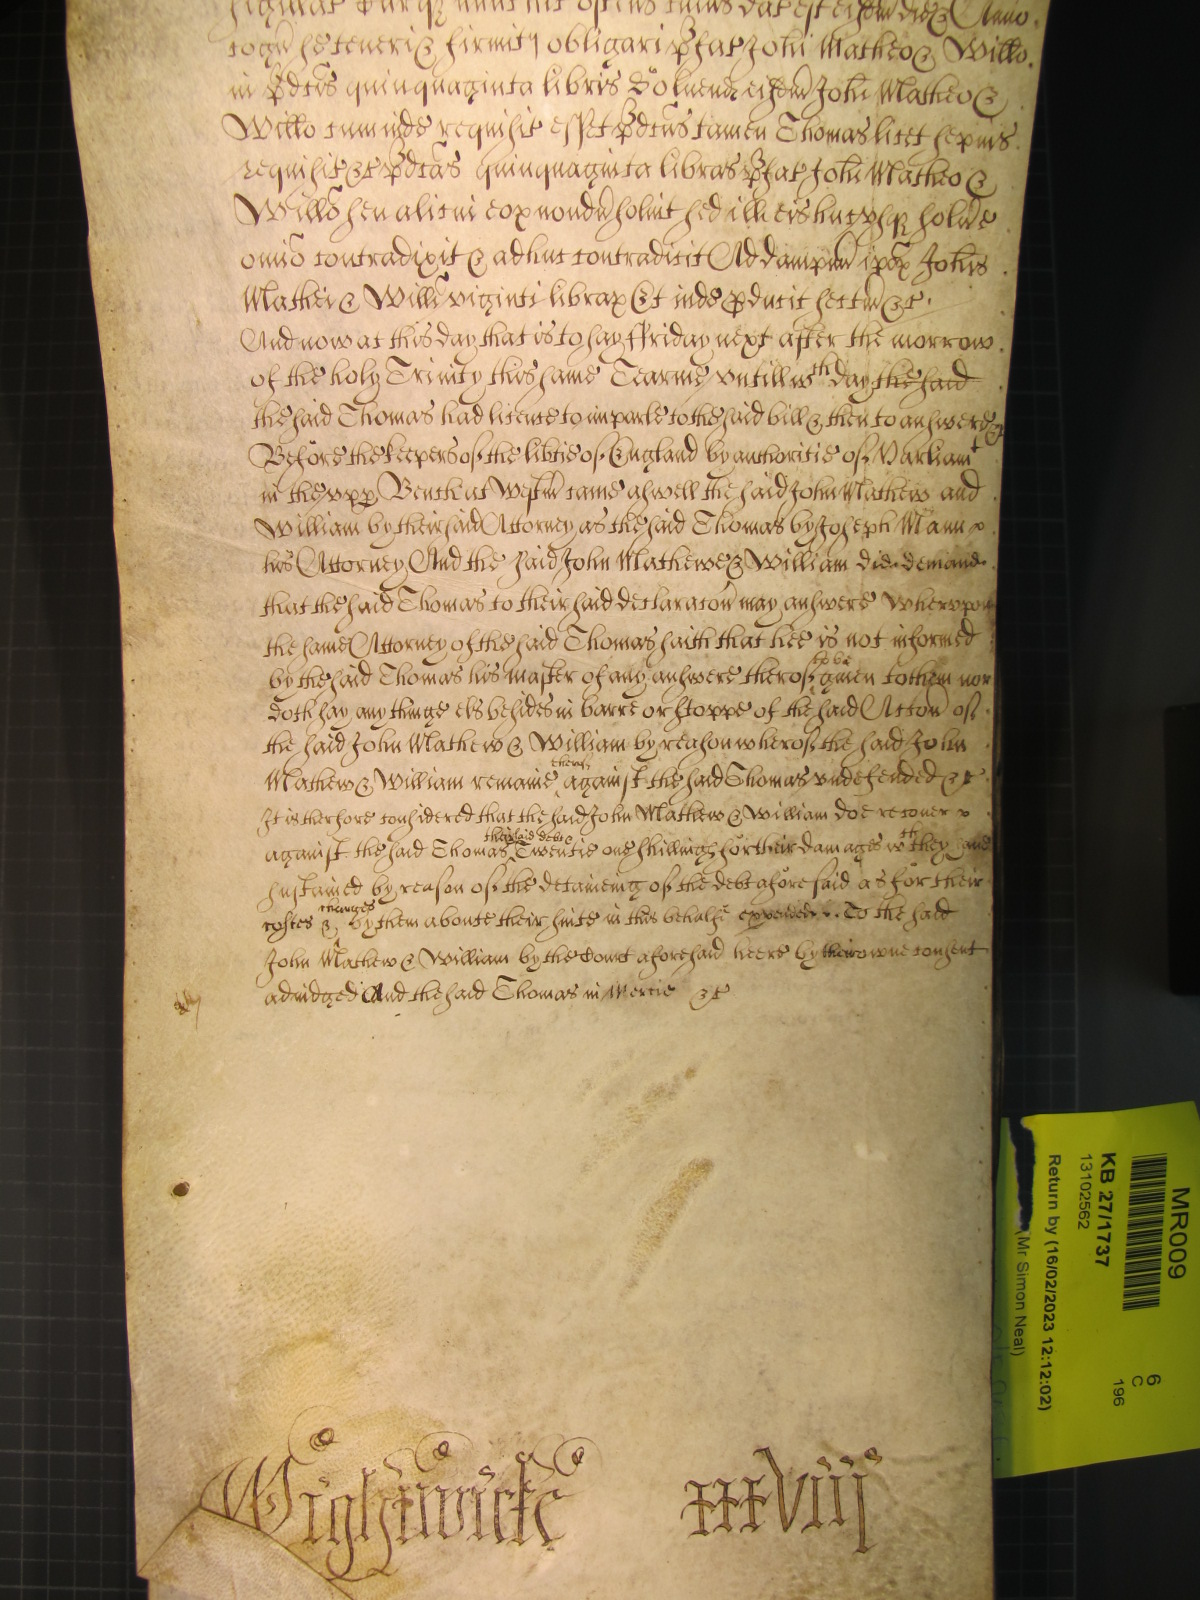 sigillat Curieq nunc hic ostens cuius dat est eisdm die & Anno
cogn se teneri & firmit obligari pfat Johi Matheo & Willo
in pdcis quinquaginta libris Soluend eisdm Johi Matheo &
Willo cum inde requisit esset pdcus tamen Thomas licet sepius
requisit &c pdcas quinquaginta libras pfat Johi Matheo &
Willo seu alicui eox nondu solvit sed ill eis hucusq solvere
omio contradixit & adhuc contradicit Ad dampnu ipox Johis
Mathei & Willi viginti librax Et inde pducit sectm &c
And now at this day that is to say ffriday next after the morrow
of the holy Trinity this same Tearme untill wch day the said
the said Thomas had licence to imparle to the said bill & then to answere &c
Before the keepers of the libtie of England by authoritie of Parliamt
in the upp Bench at Westm came aswell the said John Mathew and
William by their said Attorney as the said Thomas by Joseph Mann
his Attorney And the said John Mathewe & William did demand
that the said Thomas to their said declaracon may answere Wherupon
the same Attorney of the said Thomas saith that hee is not informed
by the said Thomas his master of any answere therof to be given to them nor
doth say any thinge els besides in barre or stoppe of the said Accon of
the said John Mathew & William by reason wherof the said John
Mathew & William remaine therof against the said Thomas undefended &c
It is therfore considered that the said John Mathew & William doe recover
against the said Thomas their said debt & Twentie one shillings for their damages wch they have
sustained by reason of the deteineing of the debt aforesaid as for their
costes & charges by them aboute their suite in this behalfe expended To the said
John Mathew & William by the Court aforesaid heere by their owne consent
adiudged And the said Thomas in Mercie &c
Wightwicke xxxviij
MR009
KB 27/1737
13102562
Return by (16/02/2023 12:12:02)
(Mr Simon Neal)
6
C
196